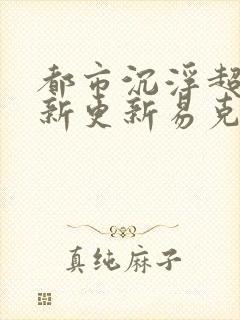 都市沉浮超
新更新易克
真纯麻子